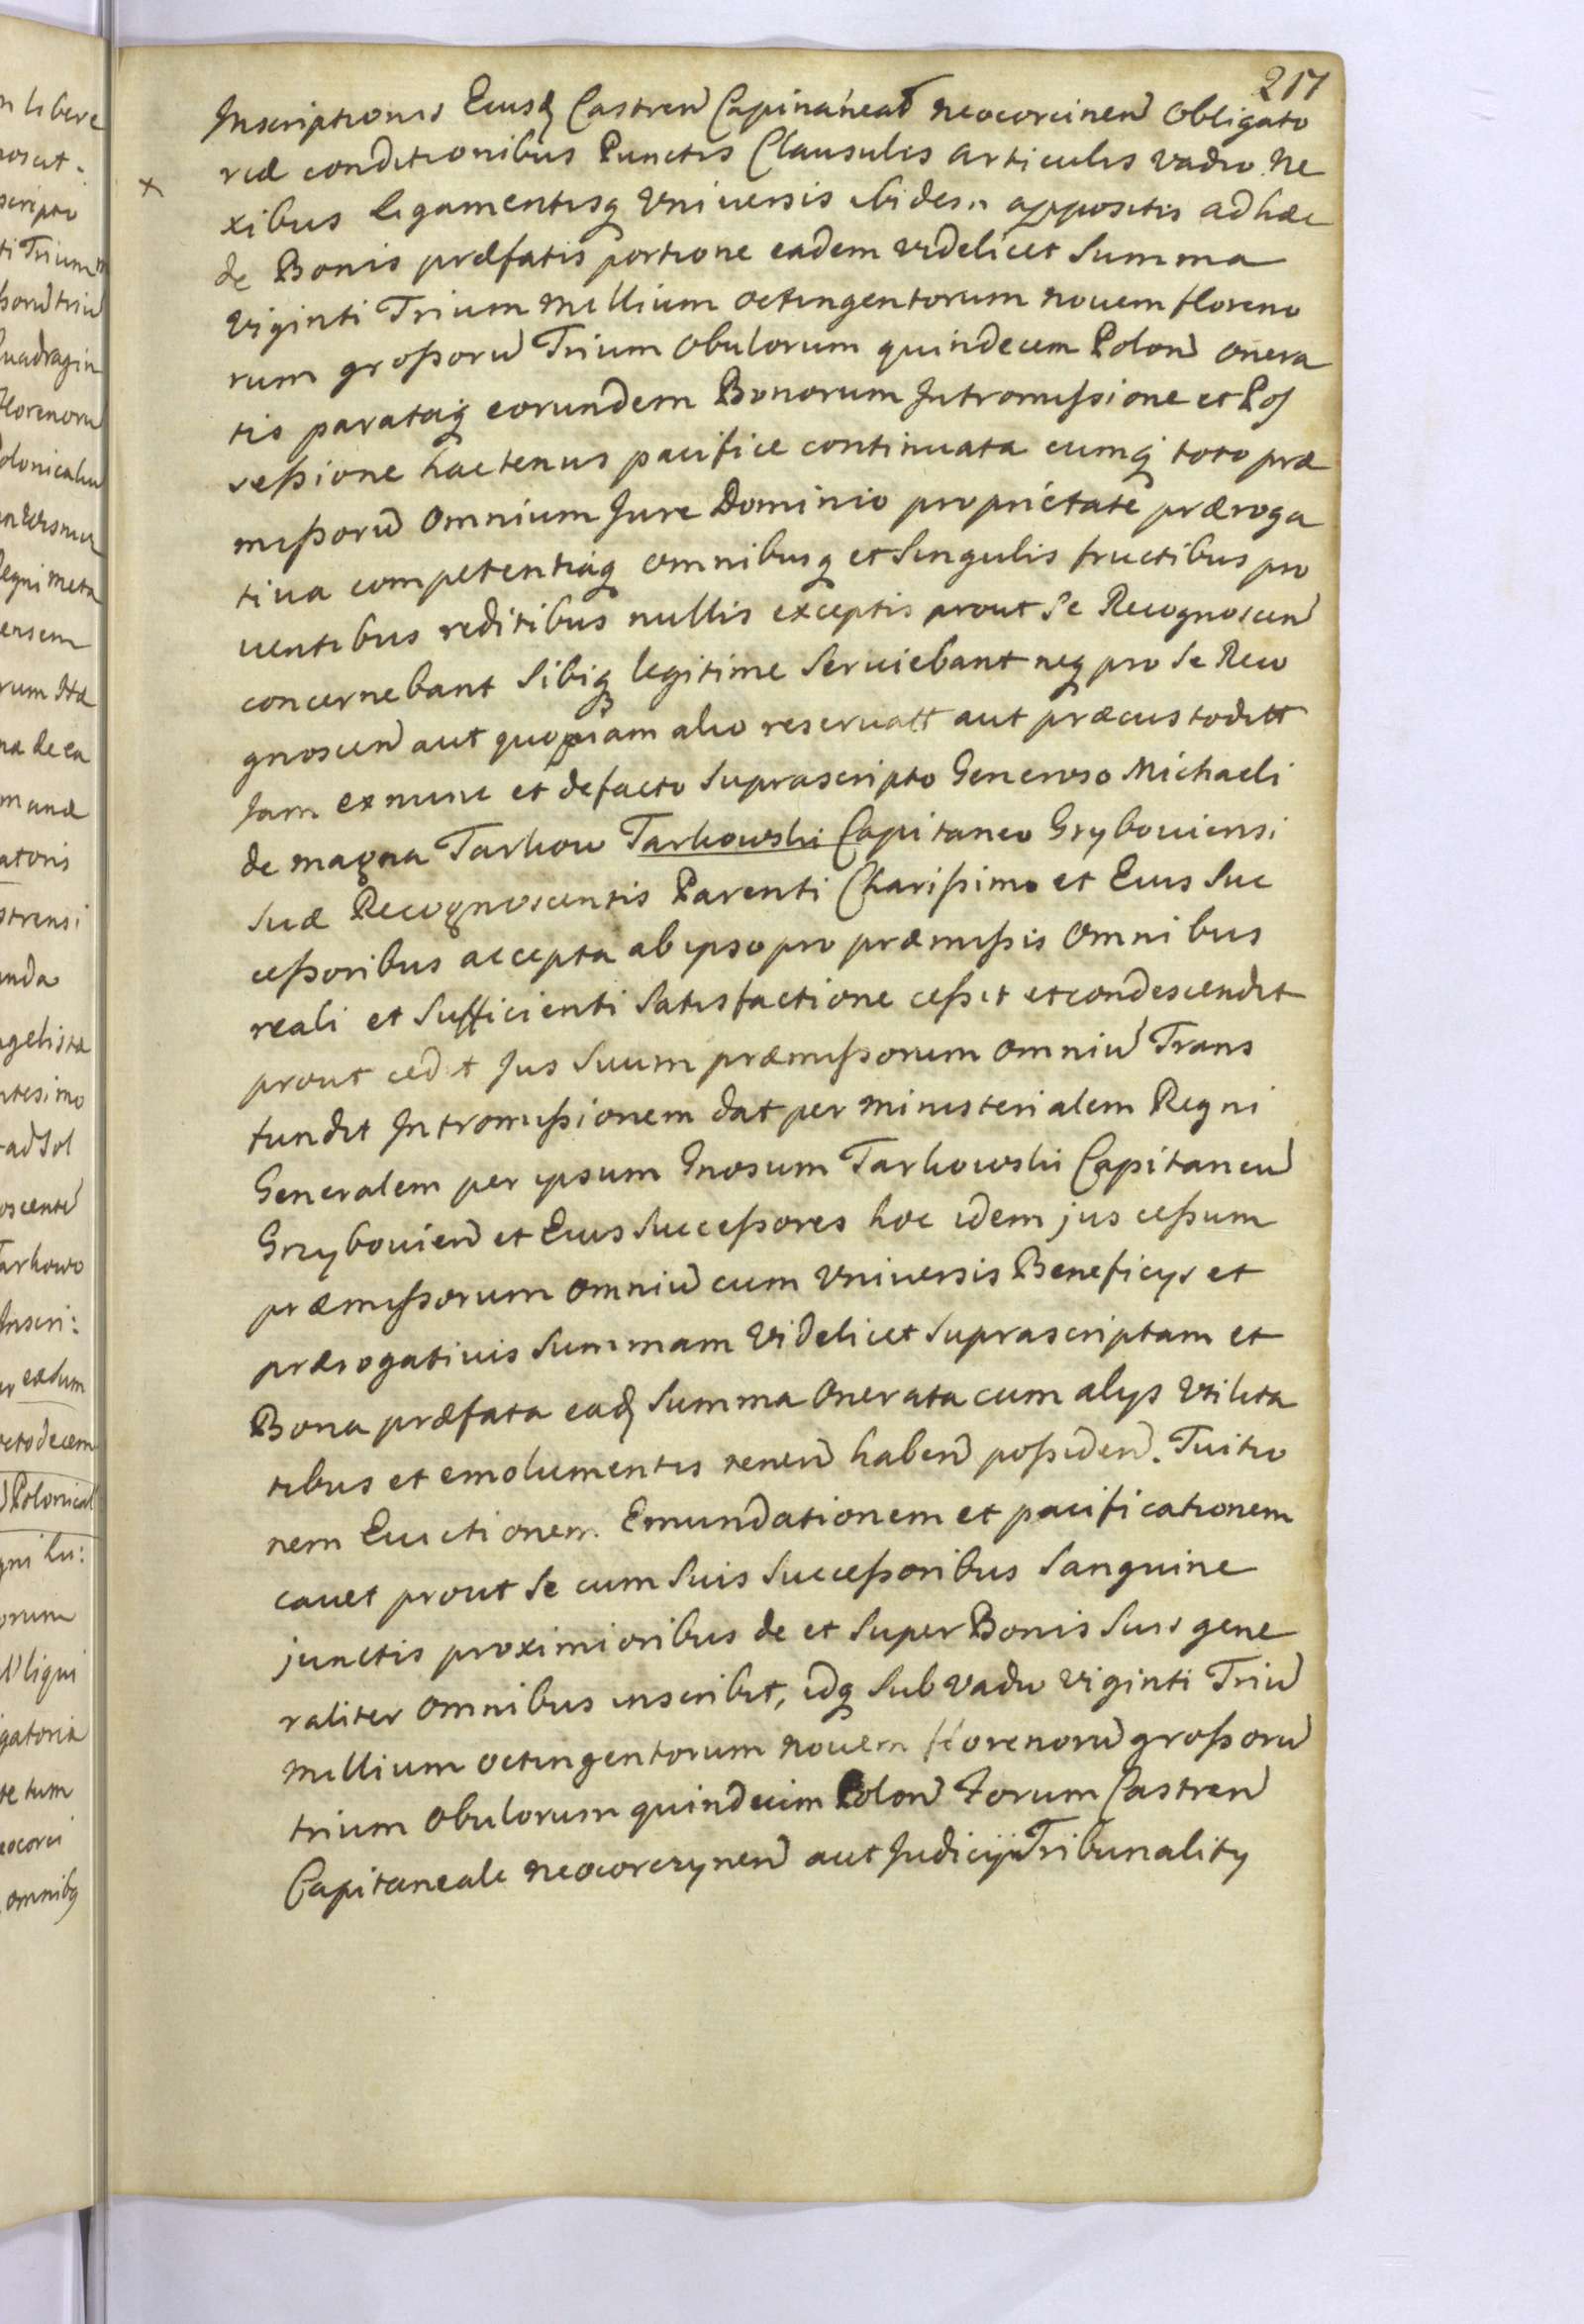 217
Inscriptionis Eiusq Castren Capitaneat neocorcinen Obligato
riæ conditionibus Punctis Clausulis articulis vadio Ne
xibus ligamentisq Vniuersis ibidem appositis ad hæc
de Bonis præfatis portione eadem videlicet Summa
Viginti Trium Millium octingentorum nouem floreno
rum großorū Trium Obulorum quindecem Polon onera
tis parataq eorundem Bonorum Intromißione et Pos
seßione hactenus pacifice continuata cumq toto præ
mißorū Omnium Jure Dominio proprietate præroga
tiua competentiaq omnibusq et Singulis fructibus pro
uentibus reditibus nullis exceptis prout Se Recognoscen
concernebant Sibiq legitime Seruiebant neq pro Se Reco
gnoscen aut quopiam alio reseruatt aut præcustoditt
Jam exnunc et defacto Suprascripto Generoso Michaeli
de magna Tarkow Tarkowski Capitaneo Grybouiensi
Suæ Recognoscentis Parenti Charißimo et Eius Suc
ceßoribus accepta ab ipso pro præmißis Omnibus
reali et Sufficienti Satisfactione ceßit et condescendit
prout cedit Jus Suum præmißorum omniū Trans
fundit Intromißionem dat per ministerialem Regni
Generalem per ipsum Gnosum Tarkowski Capitaneū
Grzybouien et Eius Succeßores hoc idem jus ceßum
præmißorum Omniū cum Vniuersis Beneficys et
prærogatiuis Summam Videlicet Suprascriptam et
Bona præfata eadq Summa Onerata cum alys Vtilita
tibus et emolumentis tenen haben poßiden. Tuitio
nem Euictionem Emundationem et pacificationem
cauet prout Se cum Suis Succeßoribus Sanguine
junctis proximioribus de et Super Bonis Suis gene
raliter Omnibus inscribit, idq Sub vadio Viginti Triū
Millium octingentorum Nouem florenorū großorū
trium Obulorum quindecim Polon Forum Castren
Capitaneale neocorczynen aut Judicij Tribunality